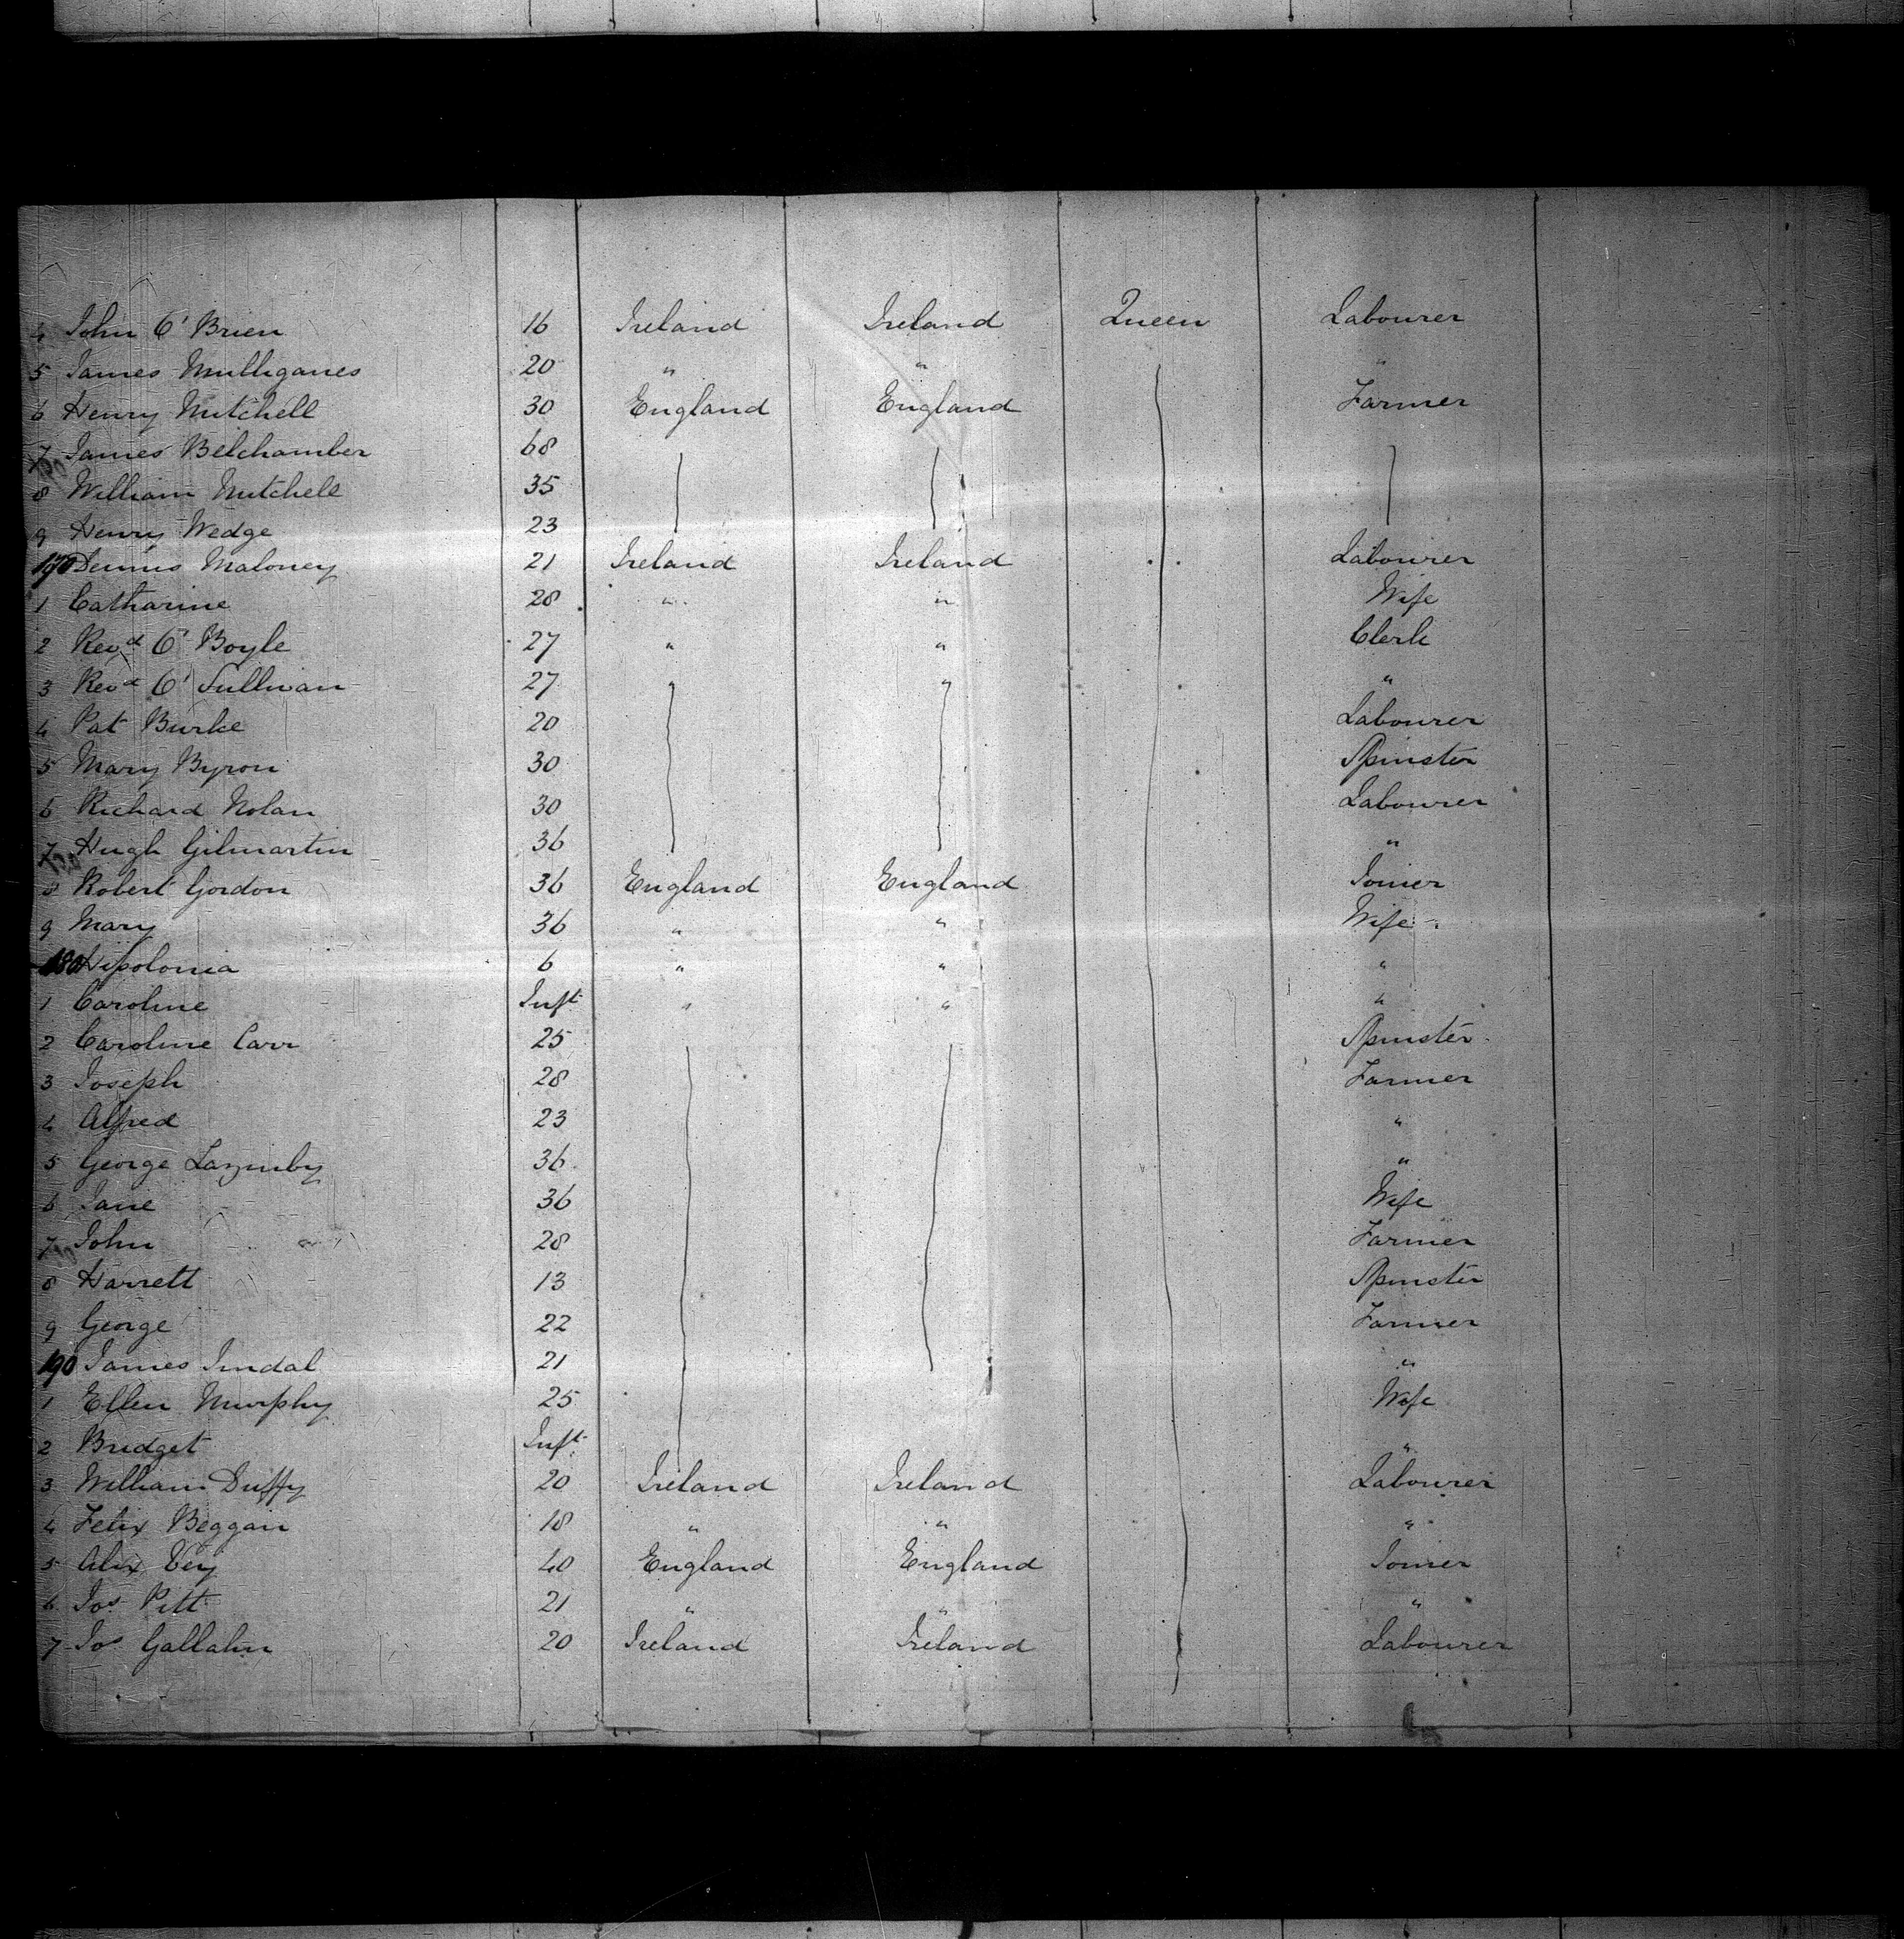 4 John O'Brien 16 Ireland Ireland Queen Labourer
5 James Mulliganes 20 " " "
6 Henry Mitchell 30 England England Farmer
7 James Belchamber 68
8 William Mitchell 35
9 Henry Wedge 23
170 Dennis Maloney 21 Ireland Ireland Labourer
1 Catharine 28 " " Wife
2 Revd O'Boyle 27 " " Clerk
3 Revd O'Sullivan 27 " " "
4 Pat Burke 20 Labourer
5 Mary Byron 30 Spinster
6 Richard Nolan 30 Labourer
7 Hugh Gilmartin 36 "
8 Robert Gordon 36 England England Joiner
9 Mary 36 " " Wife
180 Hipolonia 6 " " "
1 Caroline Inft " " "
2 Caroline Carr 25 Spinster
3 Joseph 28 Farmer
4 Alfred 23 "
5 George Lazenby 36 "
6 Jane 36 Wife
7 John 28 Farmer
8 Harrett 13 Spinster
9 George 22 Farmer
190 James 21 "
1 Ellen Murphy 25 Wife
2 Bridget Inft "
3 William Duffy 20 Ireland Ireland Labourer
4 Felix Beggan 18 " " "
5 Alex 40 England England Joiner
6 Jos Pitt 21 " " "
7 Jos Gallahn 20 Ireland Ireland Labourer